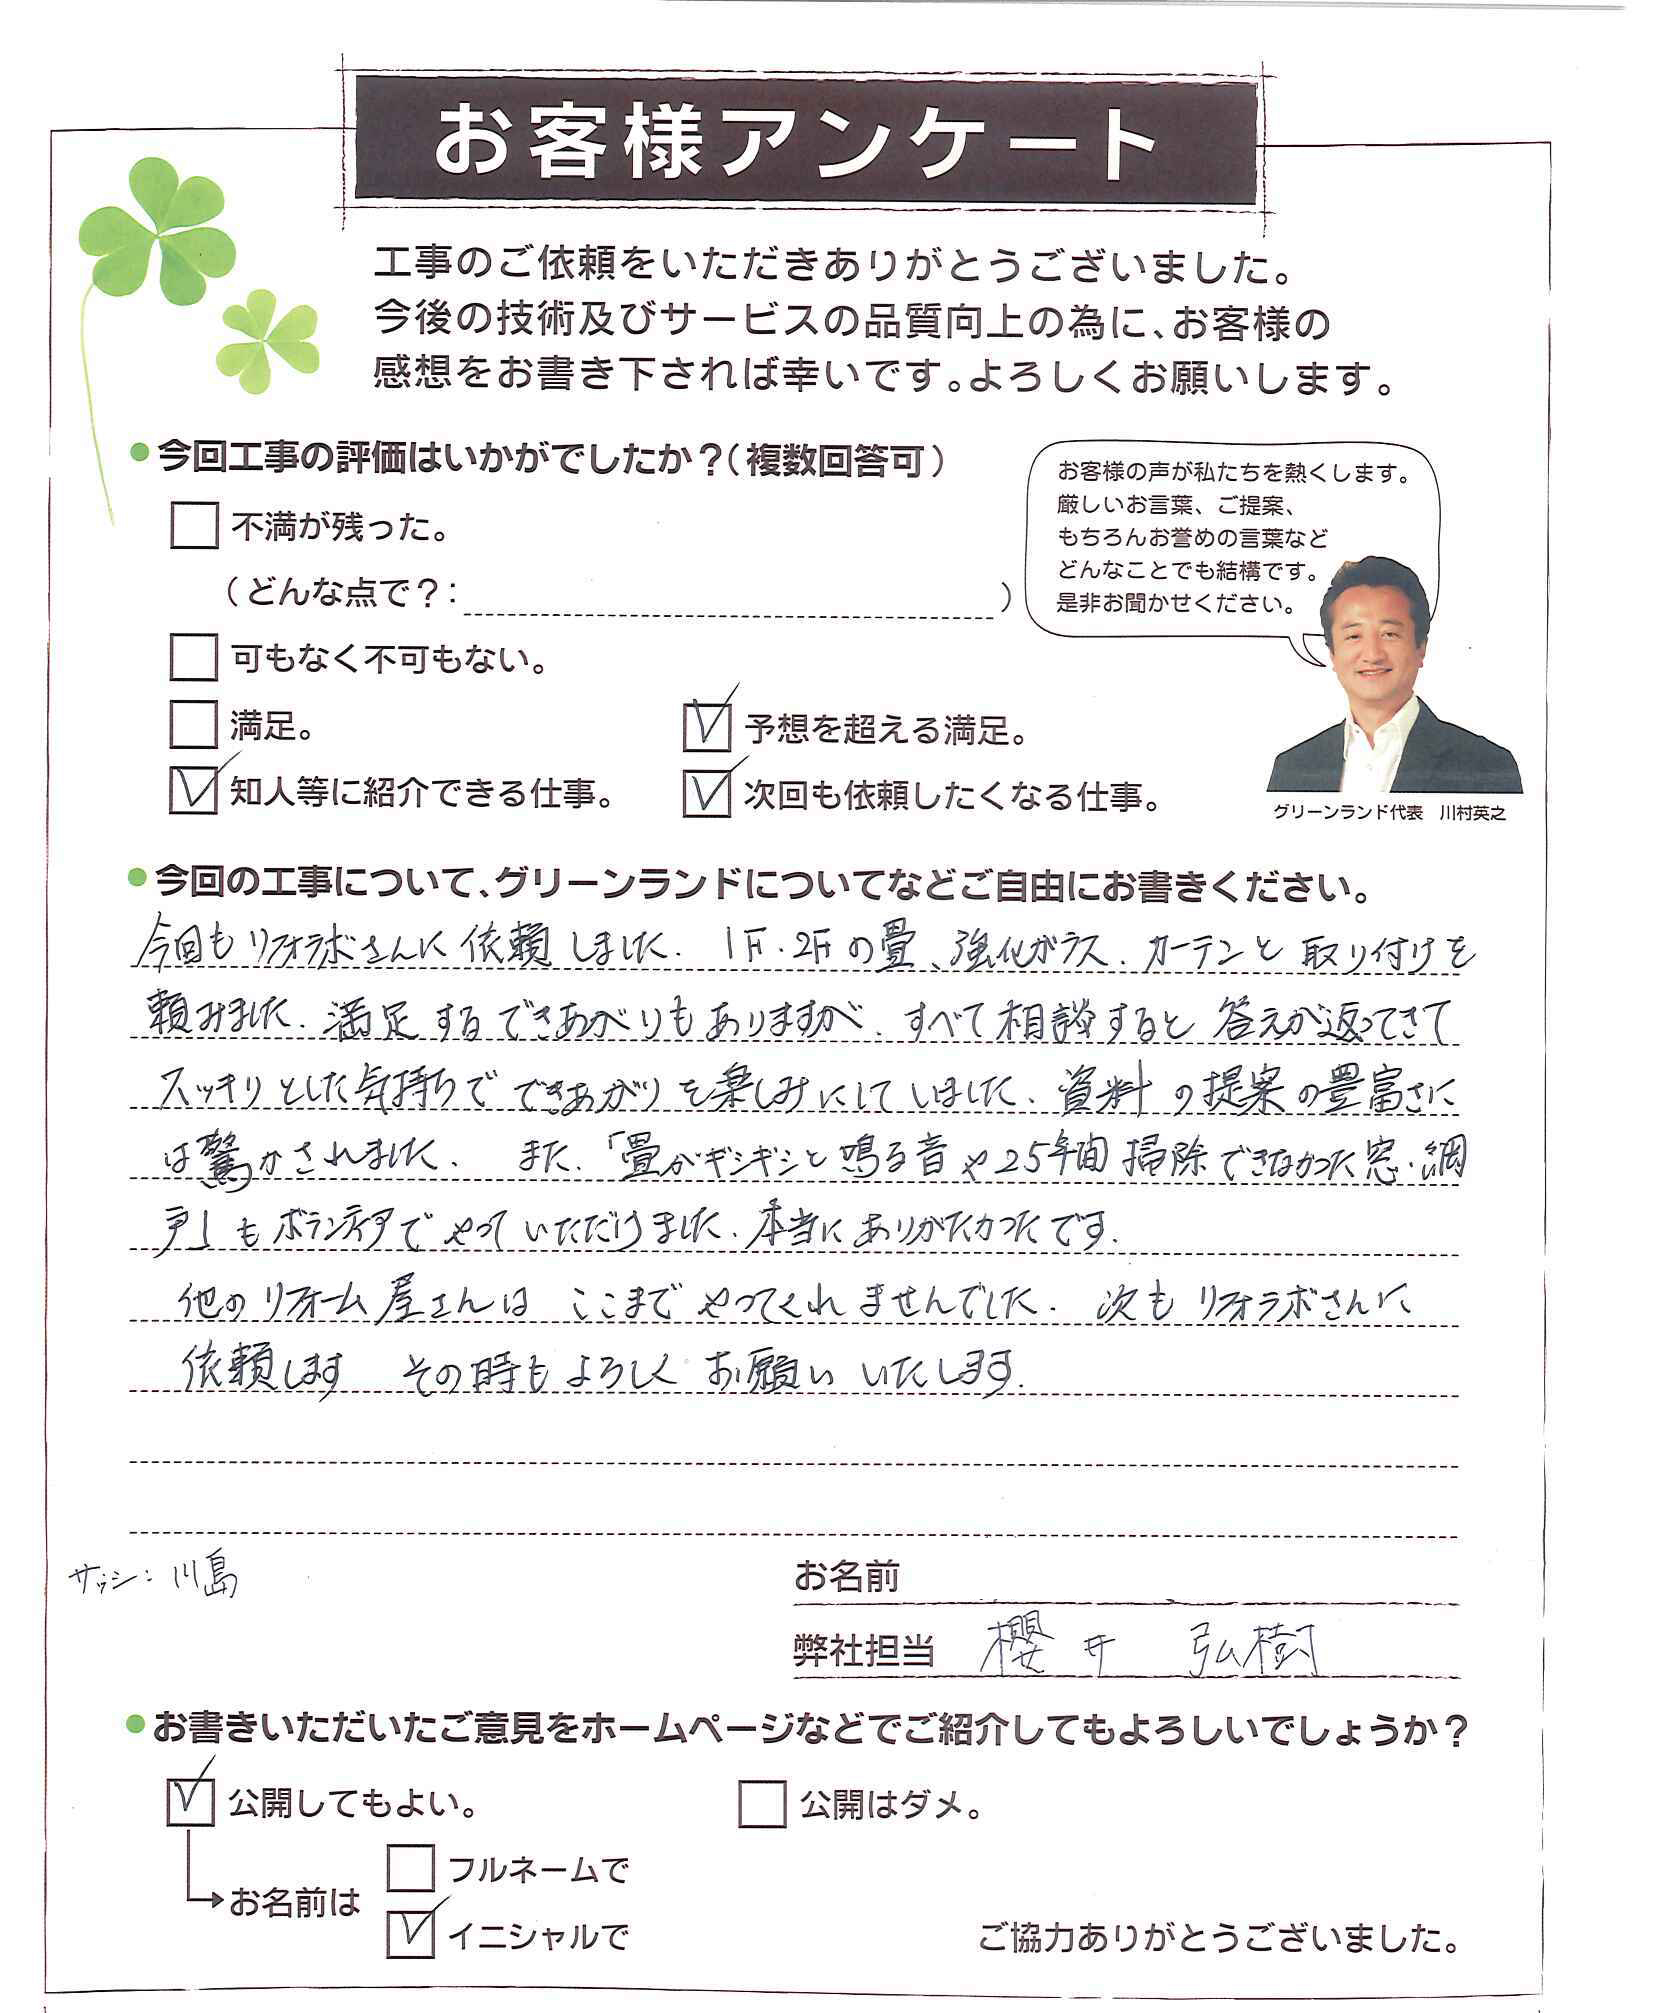 お客様アンケート
工事のご依頼をいただきありがとうございました。
今後の技術及びサービスの品質向上の為に、お客様の
感想をお書き下されば幸いです。よろしくお願いします。
今回工事の評価はいかがでしたか？（複数回答可）
不満が残った。
（どんな点で？： ）
可もなく不可もない。
満足。
予想を超える満足。
知人等に紹介できる仕事。
次回も依頼したくなる仕事。
お客様の声が私たちを熱くします。
厳しいお言葉、ご提案、
もちろんお誉めの言葉など
どんなことでも結構です。
是非お聞かせください。
グリーンランド代表　川村英之
今回の工事について、グリーンランドについてなどご自由にお書きください。
今回もリフォラボさんに依頼しました。1F・2Fの畳、強化ガラス、カーテンと取り付けを
頼みました。満足するできあがりもありますが、すべて相談すると答えが返ってきて
スッキリとした気持ちでできあがりを楽しみにしていました。資料の提案の豊富さに
は驚かされました。 また、「畳がギシギシと鳴る音や25年間掃除できなかった窓・網
戸」もボランティアでやっていただけました。本当にありがたかったです。
他のリフォーム屋さんはここまでやってくれませんでした。次もリフォラボさんに
依頼します その時もよろしくお願いいたします。
サッシ：川島
お名前
弊社担当 櫻井 弘樹
お書きいただいたご意見をホームページなどでご紹介してもよろしいでしょうか？
公開してもよい。
公開はダメ。
お名前は
フルネームで
イニシャルで
ご協力ありがとうございました。